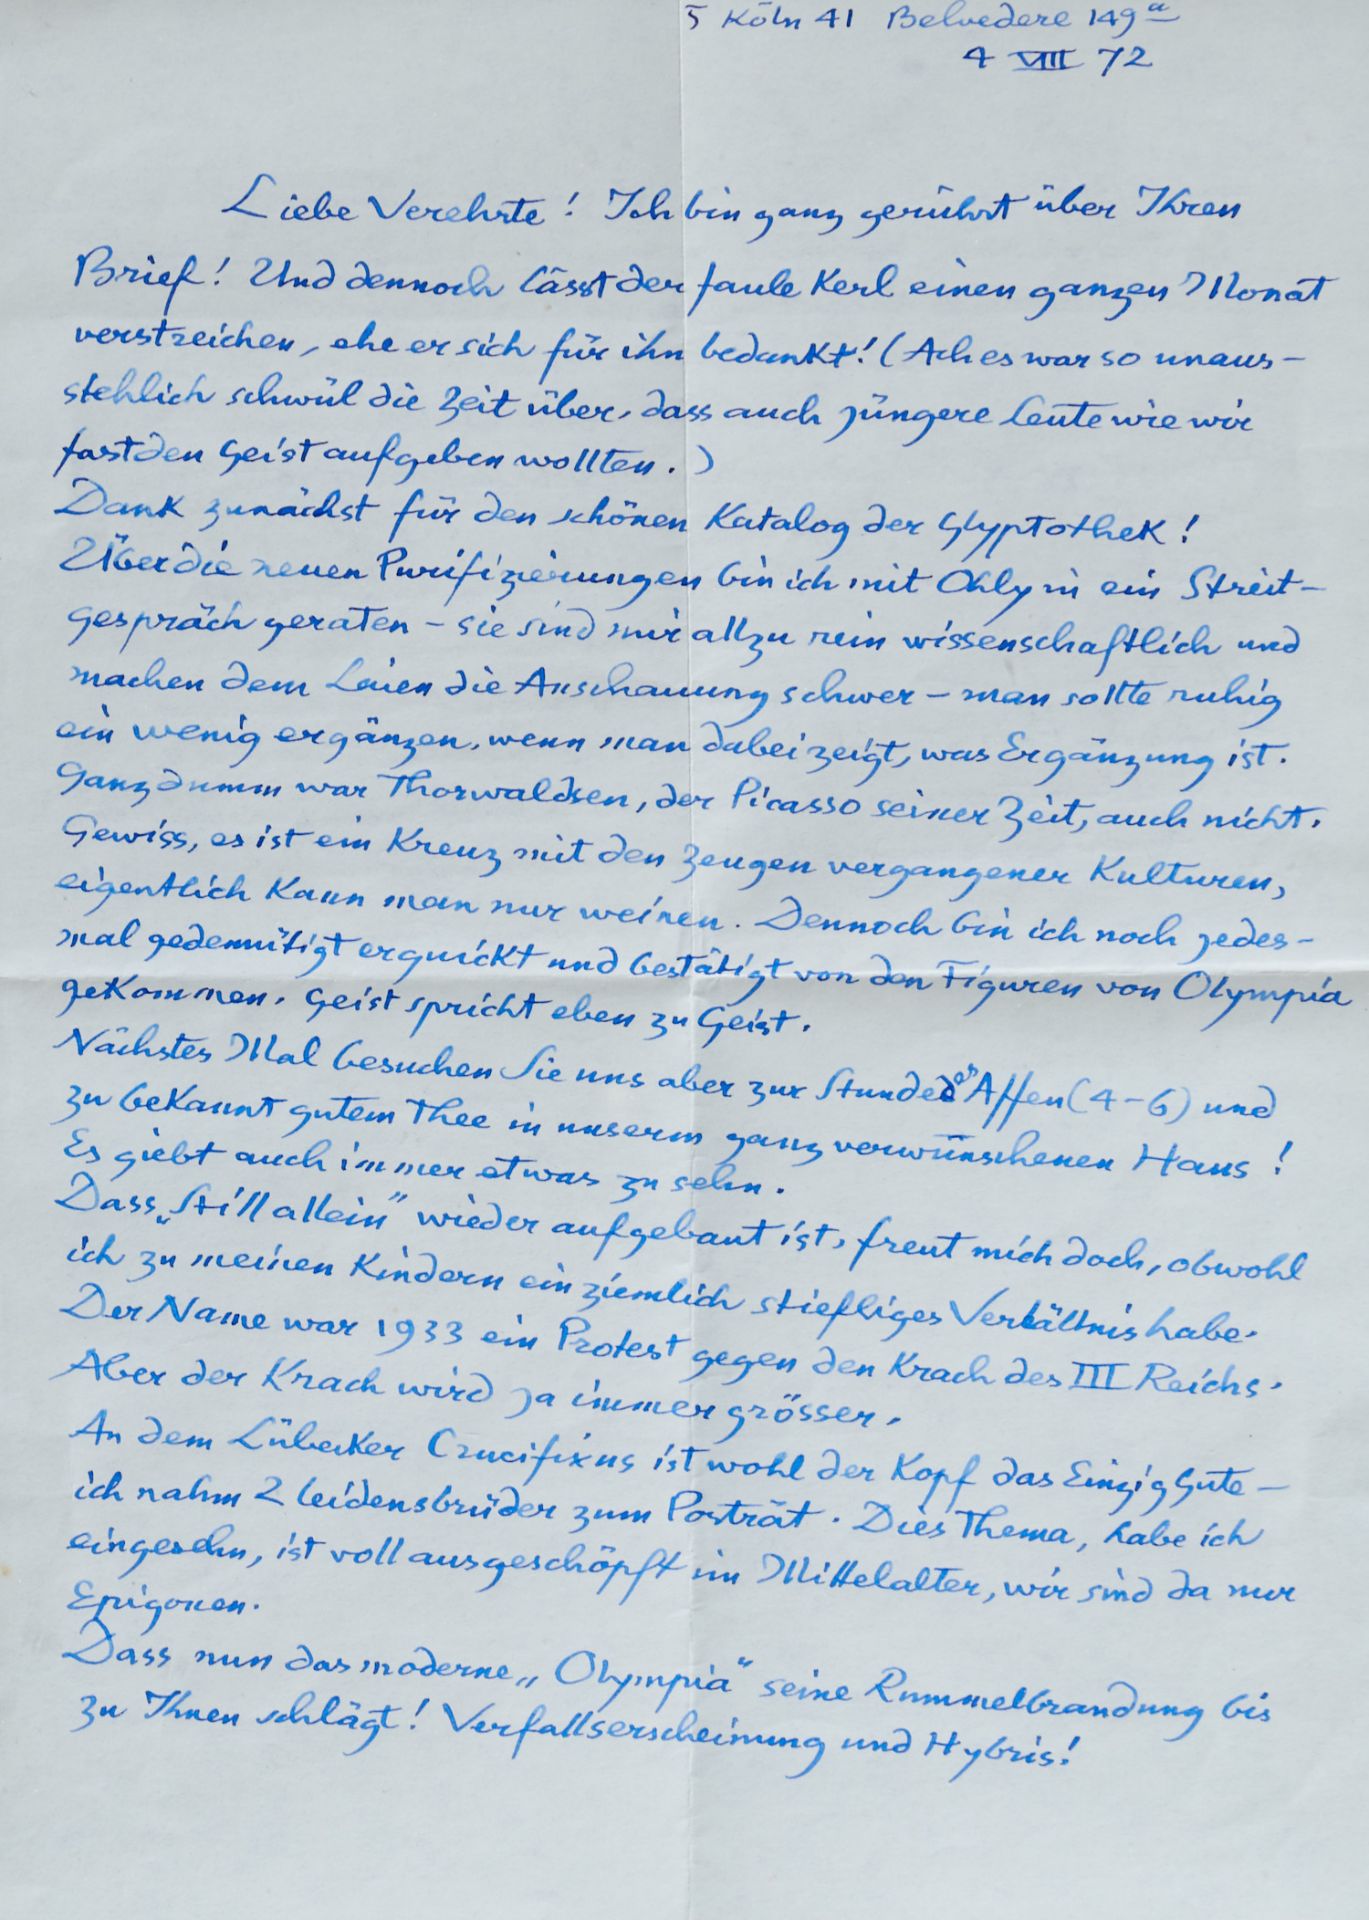 5 Köln 41 Belvedere 149a
4 VIII 72
Liebe Verehrte! Ich bin ganz gerührt über Ihren
Brief! Und dennoch lässt der faule Kerl einen ganzen Monat
verstreichen, ehe er sich für ihn bedankt! (Ach es war so unaus-
stehlich schwül die Zeit über, dass auch jüngere Leute wie wir
fast den Geist aufgeben wollten.)
Dank zunächst für den schönen Katalog der Glyptothek!
Über die neuen Purifizierungen bin ich mit Ohly in ein Streit-
gespräch geraten – sie sind mir allzu rein wissenschaftlich und
machen dem Laien die Anschauung schwer – man sollte ruhig
ein wenig ergänzen, wenn man dabei zeigt, was Ergänzung ist.
Ganz dumm war Thorwaldsen, der Picasso seiner Zeit, auch nicht.
Gewiss, es ist ein Kreuz mit den Zeugen vergangener Kulturen,
eigentlich kann man nur weinen. Dennoch bin ich noch jedes-
mal gedemütigt erquickt und bestätigt von den Figuren von Olympia
gekommen. Geist spricht eben zu Geist.
Nächstes Mal besuchen Sie uns aber zur Stunde des Affen (4-6) und
zu bekannt gutem Thee in unserm ganz verwünschenen Haus!
Es giebt auch immer etwas zu sehn.
Dass „Still allein" wieder aufgebaut ist, freut mich doch, obwohl
ich zu meinen Kindern ein ziemlich stiefliges Verhältnis habe.
Der Name war 1933 ein Protest gegen den Krach des III Reichs.
Aber der Krach wird ja immer grösser.
An dem Lübecker Crucifixus ist wohl der Kopf das Einzig Gute –
ich nahm 2 Leidensbrüder zum Porträt. Dies Thema, habe ich
eingesehn, ist voll ausgeschöpft im Mittelalter, wir sind da nur
Epigonen.
Dass nun das moderne „Olympia" seine Rummelbrandung bis
zu Ihnen schlägt! Verfallserscheinung und Hybris!